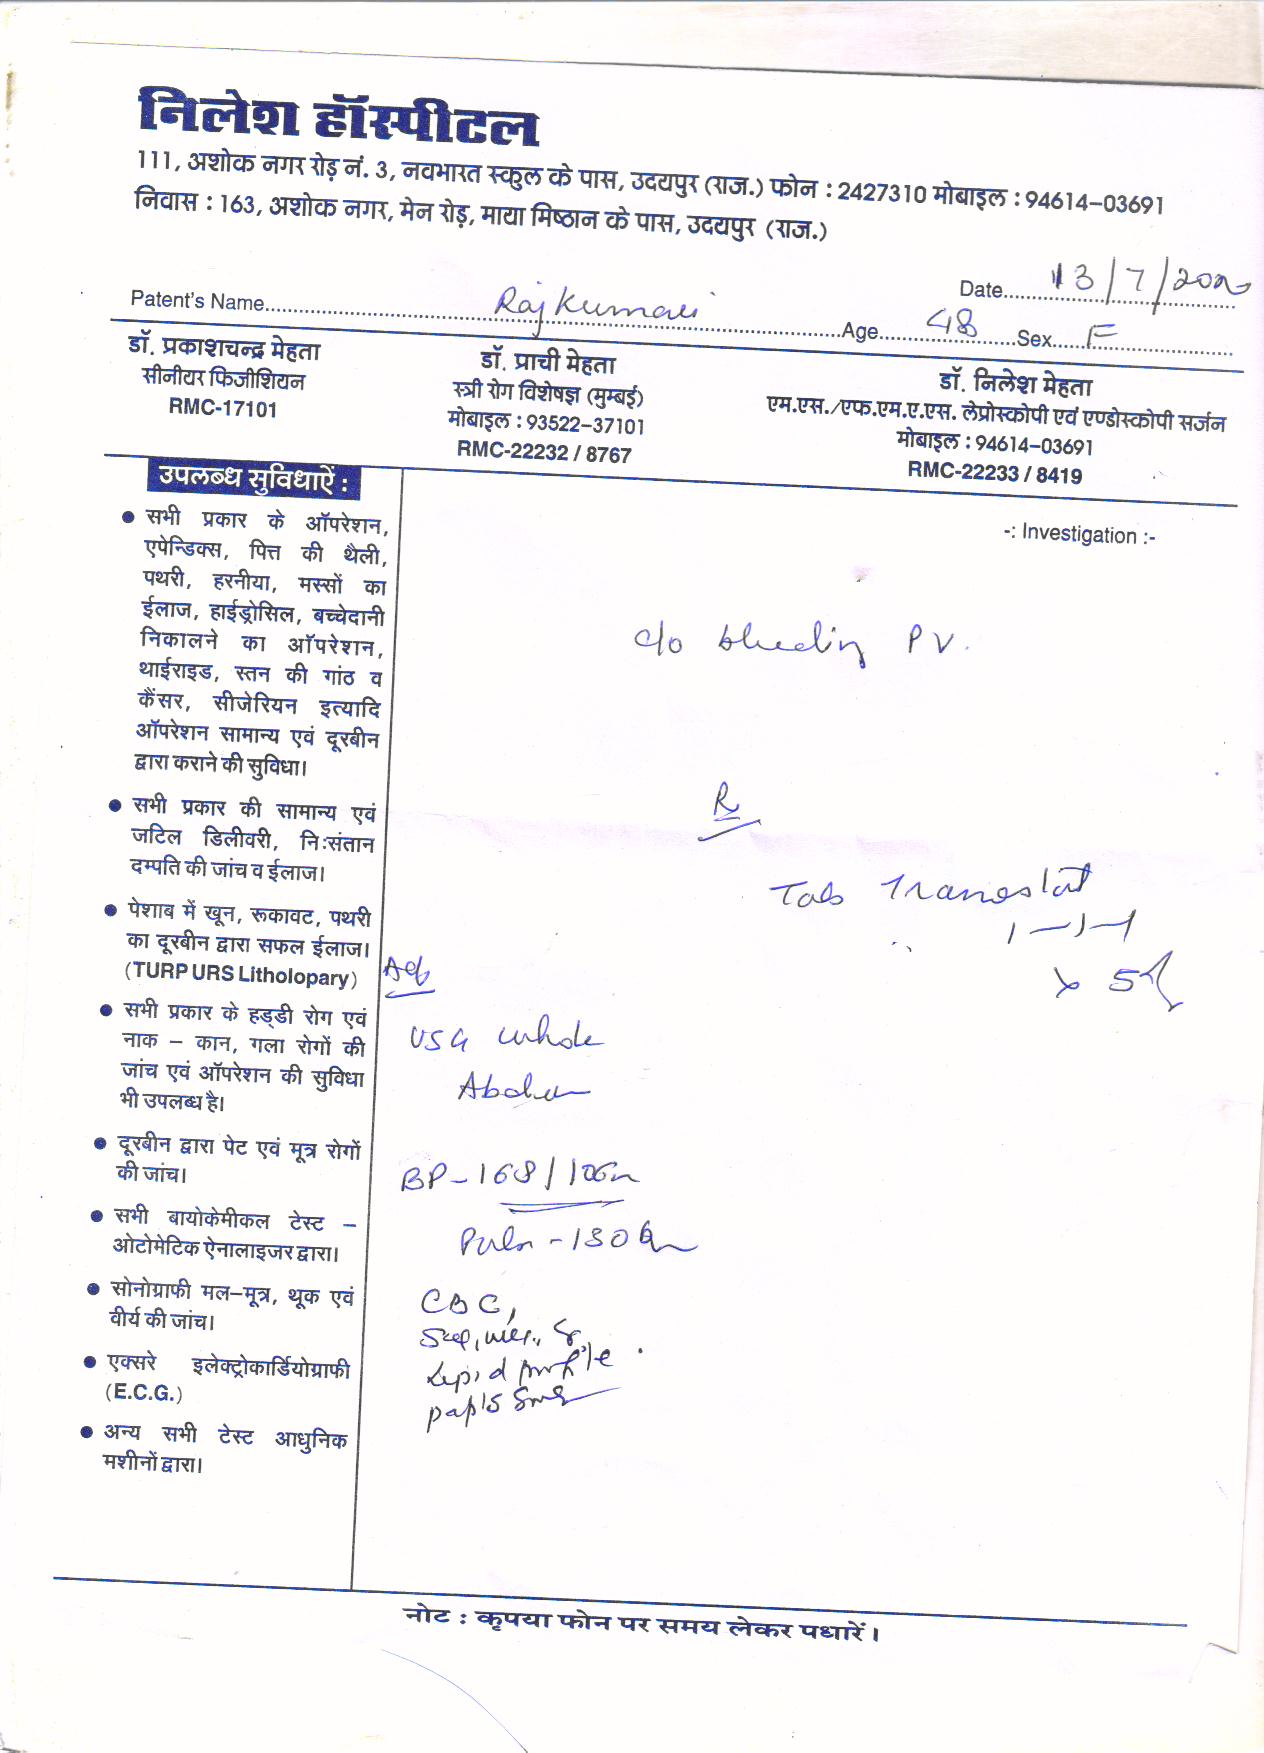 निलेश हॉस्पीटल
111, अशोक नगर रोड़ नं. 3, नवभारत स्कुल के पास, उदयपुर (राज.) फोन : 2427310 मोबाइल : 94614-03691
निवास : 163, अशोक नगर, मेन रोड़, माया मिष्ठान के पास, उदयपुर (राज.)
Date 13/7/2020
Patent's Name Rajkumari Age 48 Sex F
डॉ. प्रकाशचन्द्र मेहता
सीनीयर फिजीशियन
RMC-17101
डॉ. प्राची मेहता
स्त्री रोग विशेषज्ञ (मुम्बई)
मोबाइल : 93522-37101
RMC-22232 / 8767
डॉ. निलेश मेहता
एम.एस./एफ.एम.ए.एस. लेप्रोस्कोपी एवं एण्डोस्कोपी सर्जन
मोबाइल : 94614-03691
RMC-22233 / 8419
उपलब्ध सुविधाऐं :
● सभी प्रकार के ऑपरेशन,
एपेन्डिक्स, पित्त की थैली,
पथरी, हरनीया, मस्सों का
ईलाज, हाईड्रोसिल, बच्चेदानी
निकालने का ऑपरेशन,
थाईराइड, स्तन की गांठ व
कैंसर, सीजेरियन इत्यादि
ऑपरेशन सामान्य एवं दूरबीन
द्वारा कराने की सुविधा।
● सभी प्रकार की सामान्य एवं
जटिल डिलीवरी, निःसंतान
दम्पति की जांच व ईलाज।
● पेशाब में खून, रूकावट, पथरी
का दूरबीन द्वारा सफल ईलाज।
(TURP URS Litholopary)
● सभी प्रकार के हड्डी रोग एवं
नाक - कान, गला रोगों की
जांच एवं ऑपरेशन की सुविधा
भी उपलब्ध है।
● दूरबीन द्वारा पेट एवं मूत्र रोगों
की जांच।
● सभी बायोकेमीकल टेस्ट -
ओटोमेटिक ऐनालाइजर द्वारा।
● सोनोग्राफी मल-मूत्र, थूक एवं
वीर्य की जांच।
● एक्सरे इलेक्ट्रोकार्डियोग्राफी
(E.C.G.)
● अन्य सभी टेस्ट आधुनिक
मशीनों द्वारा।
-: Investigation :-
c/o bleeding PV.
R
Tab
1-1-1
x 5
USG whole
Abdomen
BP-168/106
Pulse -130
CBC,
Lipid profile
pap's smear
नोट : कृपया फोन पर समय लेकर पधारें।